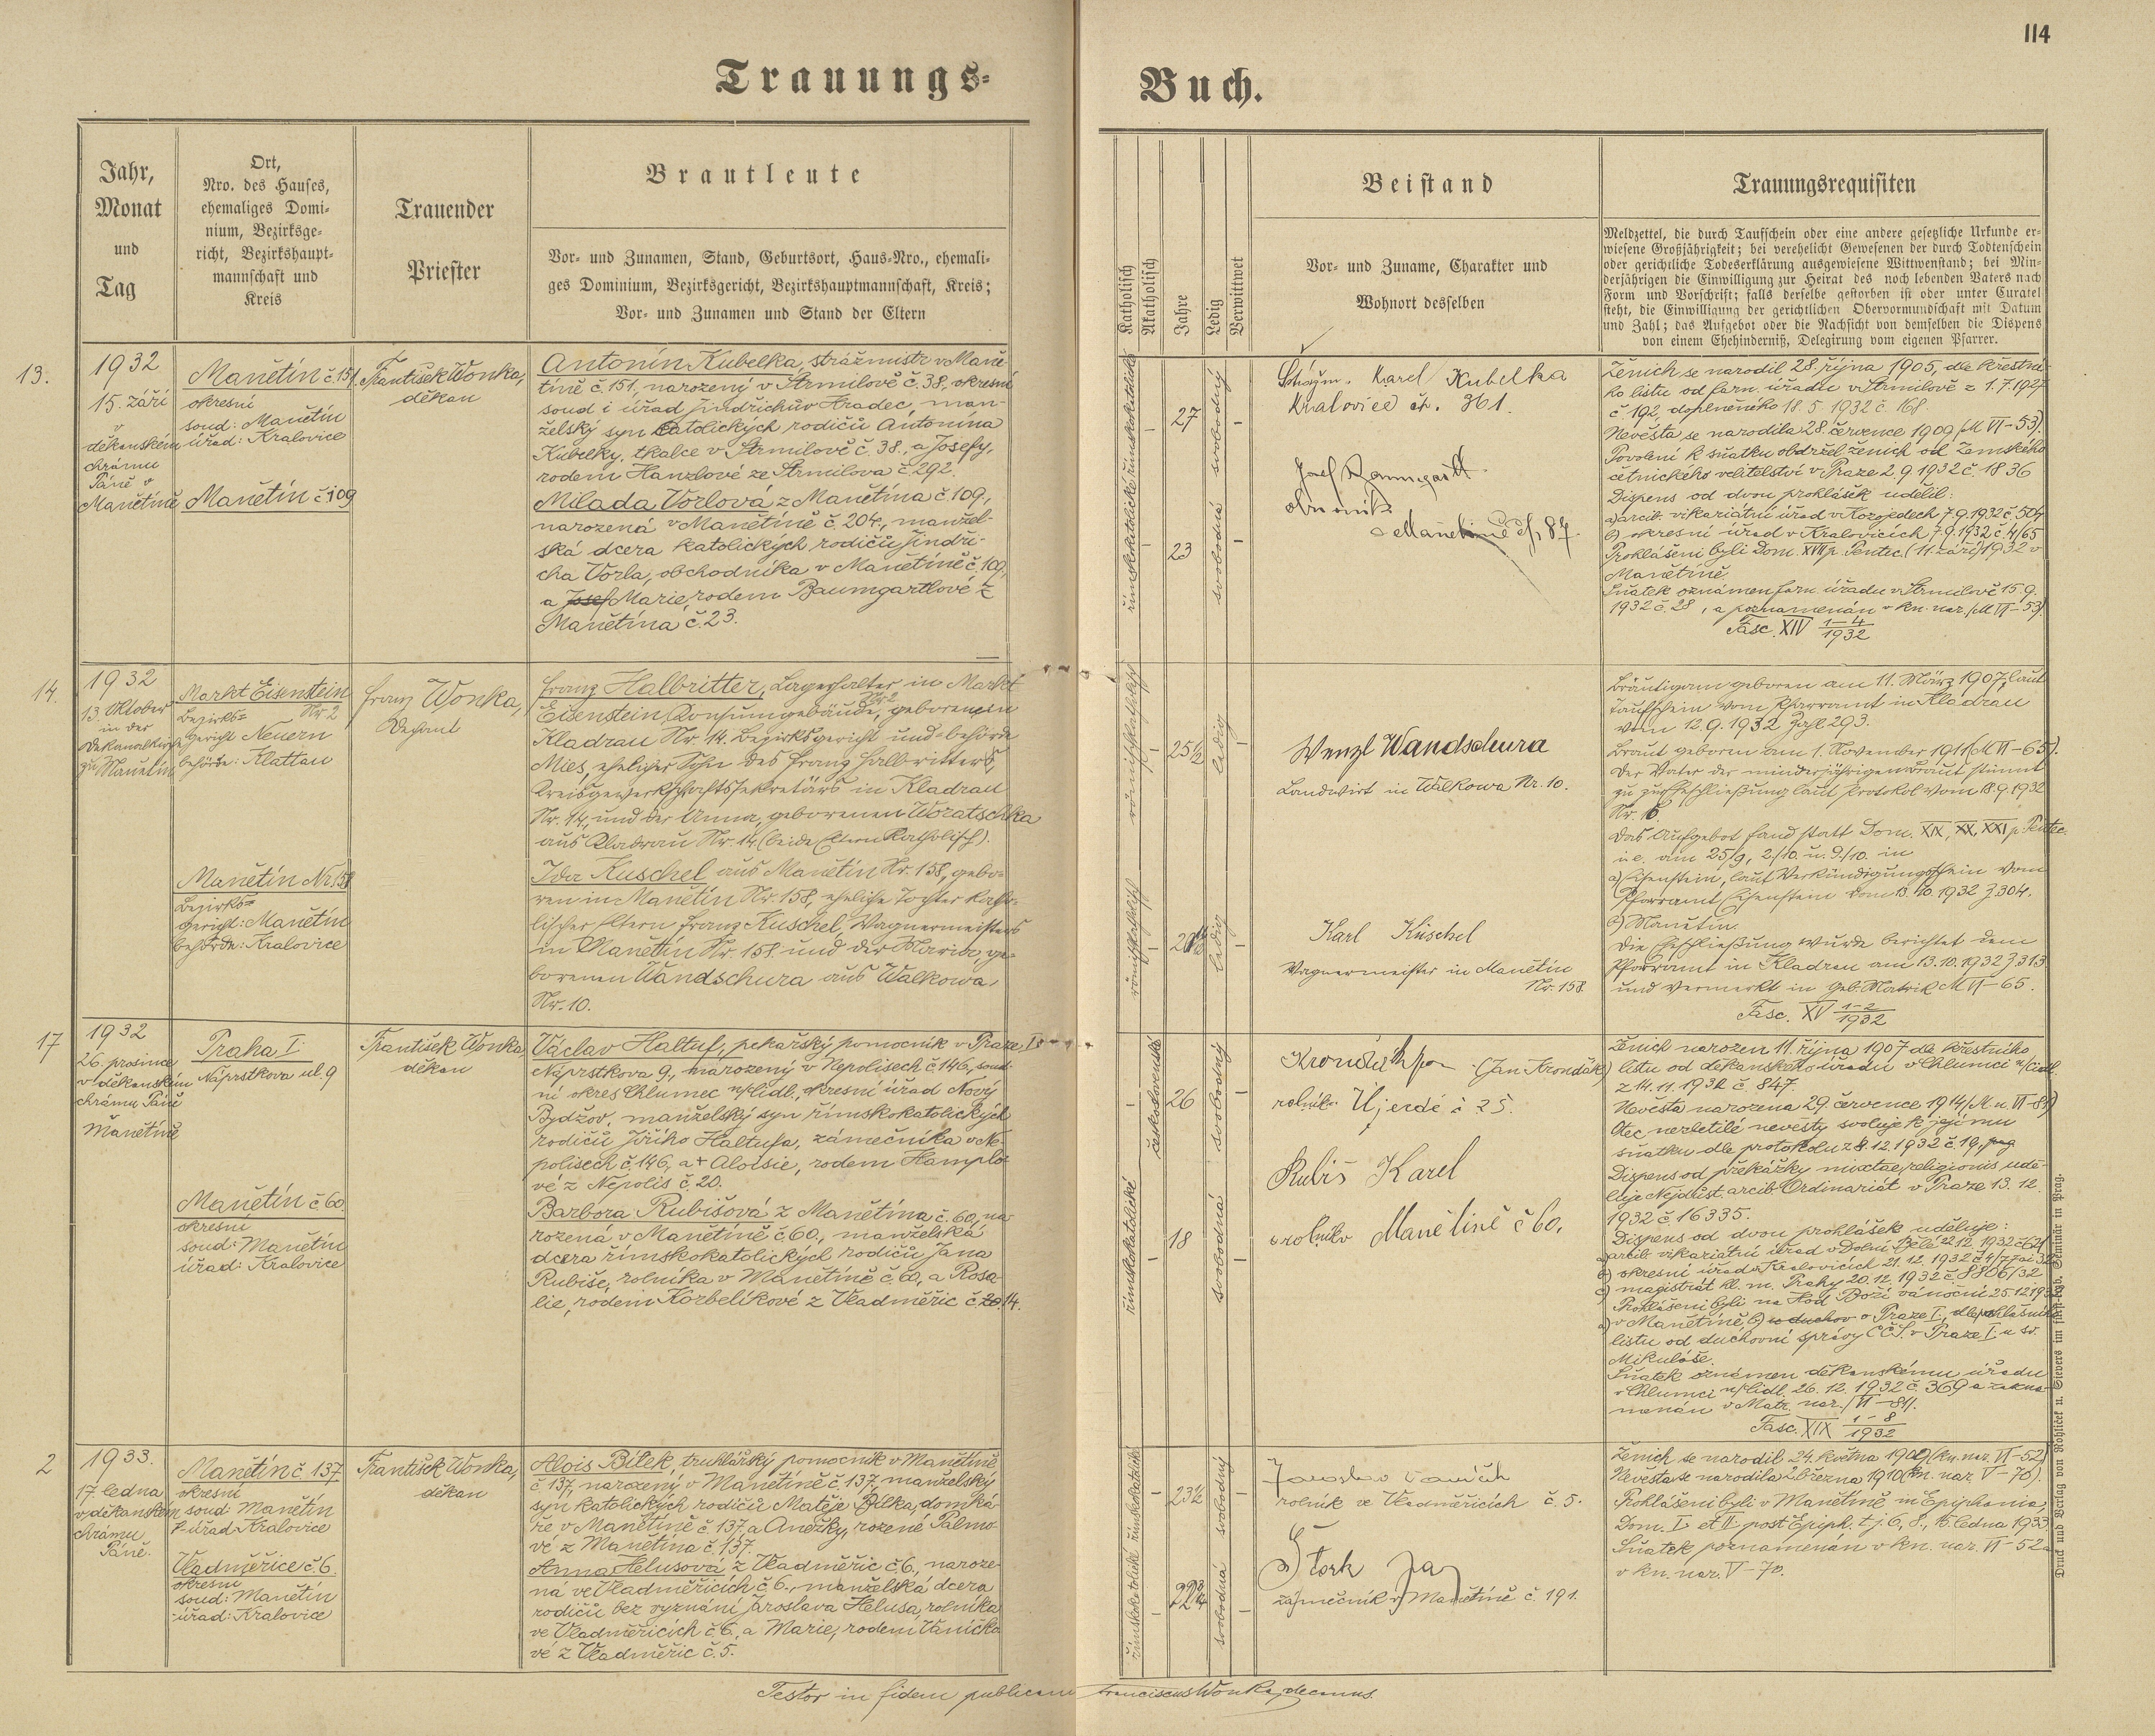 114
Trauungs-
Buch.
Jahr,
Monat
und
Tag
Ort,
Nro. des Hauses,
ehemaliges Domi-
nium, Bezirksge-
richt, Bezirkshaupt-
mannschaft und
Kreis
Trauender
Priester
Brautleute
Vor- und Zunamen, Stand, Geburtsort, Haus-Nro., ehemali-
ges Dominium, Bezirksgericht, Bezirkshauptmannschaft, Kreis;
Vor- und Zunamen und Stand der Eltern
Katholisch
Akatholisch
Jahre
Ledig
Verwittwet
Beistand
Vor- und Zuname, Charakter und
Wohnort desselben
Trauungsrequisiten
Meldzettel, die durch Taufschein oder eine andere gesetzliche Urkunde er-
wiesene Großjährigkeit; bei verehelicht Gewesenen der durch Todtenschein
oder gerichtliche Todeserklärung ausgewiesene Wittwenstand; bei Min-
derjährigen die Einwilligung zur Heirat des noch lebenden Vaters nach
Form und Vorschrift; falls derselbe gestorben ist oder unter Curatel
steht, die Einwilligung der gerichtlichen Obervormundschaft mit Datum
und Zahl; das Aufgebot oder die Nachsicht von demselben die Dispens
von einem Ehehinderniß, Delegirung vom eigenen Pfarrer.
13.
1932
15. září
v
děkanském
chrámu
Páně v
Manětíně
Manětín č 151.
okresní
soud: Manětín
úřad: Kralovice
Manětín č 109
František Wonka,
děkan
Antonín Kubelka, strážmistr v Mané-
tíně č 151, narozený v Strmilově č. 38. okresní
soud i úřad Jindřichův Hradec, man-
želský syn katolických rodičů Antonína
Kubelky, tkalce v Strmilově č. 38., a Josefy,
rodem Hanzlové ze Strmilova č. 292.
Milada Vorlová z Manětína č. 109.,
narozená v Manětíně č. 204., manžel-
ská dcera katolických rodičů Jindři-
cha Vorla, obchodníka v Manětíně č. 109,
a Josef Marie, rodem Baumgartlové z
Manětína č. 23.
římskokatolické římskokatolické
27
23
svobodná svobodný
Strážm. Karel Kubelka
Kralovice čp. 361.
Josef Baumgartl
v Manětíně čp. 87.
Ženich se narodil 28. října 1905, dle křestní-
ho listu od farn. úřadu v Strmilově z 1.7.1927
č 192, doplněného 18. 5. 1932 č. 168.
Nevěsta se narodila 28. července 1909 (M VI-53).
Povolení k sňatku obdržel ženich od Zemského
četnického velitelství v Praze 2. 9. 1932 č. 1836
Dispens od dvou prohlášek udělil:
a) arcib. vikariátní úřad v Kozojedech 7.9.1932 č. 504
b) okresní úřad v Kralovicích 7.9.1932 č. 4/65
Prohlášeni byli Dom. XVII p. Pentec. (11. září) 1932 v
Manětíně.
Sňatek oznámen farn. úřadu v Strmilově 15.9.
1932 č. 28, a poznamenán v kn. nar. (M VI-53).
Fasc. XIV 1-4
1932
14.
1932
13. Oktober
in der
Dekanalkirche
zu Manetin
Markt Eisenstein
Nr 2
Bezirks-
gericht Neuern
behörde: Klattau
Manětín Nr. 158
Bezirks-
gericht: Manětín
behörde: Kralovice
Franz Wonka,
Dechant
Franz Halbritter, Lagerhalter in Markt
Eisenstein, Konsumgebäude, Nr 2 geboren in
Kladrau Nr. 14. Bezirksgericht und -behörde
Mies, ehelicher Sohn des Franz Halbritters,
Kreisgewerkschaftssekretärs in Kladrau
Nr. 14, und der Anna, geborenen Woratschka
aus Kladrau Nr. 14. (beide Eltern Katholisch).
Ida Kuschel aus Manětín Nr. 158, gebo-
ren in Manětín Nr. 158, eheliche Tochter katho-
lischer Eltern Franz Kuschel, Wagnermeisters
in Manětín Nr. 158. und der Maria, ge-
borenen Wandschura aus Walkowa,
Nr. 10.
römischkatholisch römischkatholisch
25½
ledig ledig
Wenzl Wandschura
Landwirt in Walkowa Nr. 10.
Karl Kuschel
Wagnermeister in Manětín
Nr. 158
Bräutigam geboren am 11. März 1907, laut
Taufschein vom Pfarramt in Kladrau
vom 12. 9. 1932 Zahl 293.
Braut geboren am 1. November 1911 (M VI-65).
Der Vater der minderjährigen Braut stimmt
zu zur Eheschließung laut Protokol vom 18.9.1932
Nr. 16.
Das Aufgebot fand statt Dom. XIX, XX, XXI p. Pentec.
i. e. am 25/9, 2./10. u. 9./10. in
a) Eisenstein, laut Verkündigungschein vom
Pfarramt Eisenstein vom 13. 10. 1932 Z. 304.
b) Manětín.
Die Eheschließung wurde berichtet dem
Pfarramt in Kladrau am 13. 10. 1932 Z. 313
und vermerkt in Geb. Matrik M VI-65.
Fasc. XV 1-2
1932
17
1932
26. prosince
v děkanském
chrámu Páně
Manětíně
Praha I.
Náprstkova ul. 9
Manětín č 60.
okresní
soud: Manětín
úřad: Kralovice
František Wonka
děkan
Václav Haltuf, pekařský pomocník v Praze I.
Náprstkova 9., narozený v Nepolisech č 146, soud-
ní okres Chlumec n/Cidl., okresní úřad Nový
Bydžov, manželský syn římskokatolických
rodičů Jiřího Haltufa, zámečníka v Ne-
polisech č. 146, a + Aloisie, rodem Hamplo-
vé z Nepolis č. 20.
Barbora Rubišová z Manětína č. 60, na-
rozená v Manětíně č 60., manželská
dcera římskokatolických rodičů Jana
Rubiše, rolníka v Manětíně č. 60, a Rosa-
lie, rodem Korbelíkové z Vladměřic č. 20. 14.
římskokatolické československé
26
18
svobodná svobodný
(Jan Krondák)
rolník Újezdě č 25.
Rubiš Karel
rolník v Manětíně č 60,
Ženich narozen 11. října 1907 dle křestního
listu od děkanského úřadu v Chlumci n/Cidl.
z 14. 11. 1932 č. 847.
Nevěsta narozena 29. července 1914 (M n. VI-81)
Otec nezletilé nevěsty svoluje k jejímu
sňatku dle protokolu z 8. 12. 1932 č. 19,
Dispens od překážky mixtae religionis udě-
luje Nejdůst. arcib. Ordinariát v Praze 13. 12.
1932 č. 16335.
Dispens od dvou prohlášek uděluje:
a) arcib. vikariátní úřad v Dolní Bělé 22.12. 1932 č. 621
b) okresní úřad v Kralovicích 21. 12. 1932
c) magistrát hl. m. Prahy 20. 12. 1932 č. 8806/32
Prohlášeni byli na Hod Boží vánoční 25.12.1932
a) v Manětíně b) v Praze I., dle ohlašního
listu od duchovní správy CČS. v Praze I. u sv.
Mikuláše.
Sňatek oznámen děkanskému úřadu
v Chlumci n/Cidl. 26. 12. 1932 č. 369 a zazna-
menán v Matr. nar. (VI-81).
Fasc. XIX 1-8
1932
2
1933.
17. ledna
v děkanském
chrámu
Páně.
Manětín č. 137
okresní
soud: Manětín
úřad: Kralovice
Vladměřice č. 6.
okresní
soud: Manětín
úřad: Kralovice
František Wonka,
děkan
Alois Bílek, truhlářský pomocník v Manětíně
č 137, narozený v Manětíně č. 137, manželský
syn katolických rodičů Matěje Bílka, domká-
ře v Manětíně č 137, a Anežky, rozené Palmo-
vé z Manětína č. 137.
Anna Helusová z Vladměřic č. 6., naroze-
ná ve Vladměřicích č. 6., manželská dcera
rodičů bez vyznání Jaroslava Helusa, rolníka
ve Vladměřicích č 6., a Marie, rodem Vaníčko-
vé z Vladměřic č. 5.
římskokatolické římskokatolické
23½
svobodná svobodný
Jaroslav Vaníček
rolník ve Vladměřicích č. 5.
Štork Jan
zámečník v Manětíně č. 191.
Ženich se narodil 24. května 1909 (kn. nar. VI-52)
Nevěsta se narodila 2. března 1910 (kn. nar. V-70).
Prohlášeni byli v Manětíně in Epiphania,
Dom. I. et II. post Epiph. t. j. 6., 8., 15. ledna 1933.
Sňatek poznamenán v kn. nar. VI-52 a
v kn. nar. V-70.
Testor in fidem publicam Franciscus Wonka, decanus.
Druck und Verlag von Rohlíček u. Sievers im fürst-erzb. Seminär in Prag.